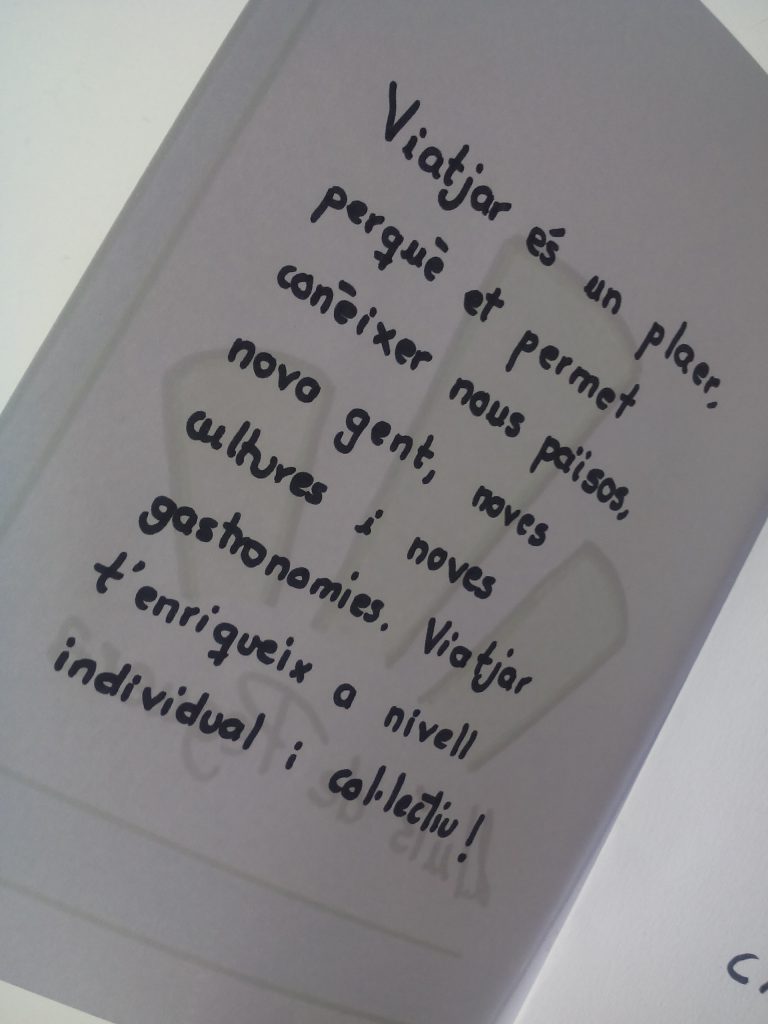 Viatjar és un plaer,
perquè et permet
conèixer nous països,
nova gent, noves
cultures i noves
gastronomies. Viatjar
t'enriqueix a nivell
individual i col·lectiu!